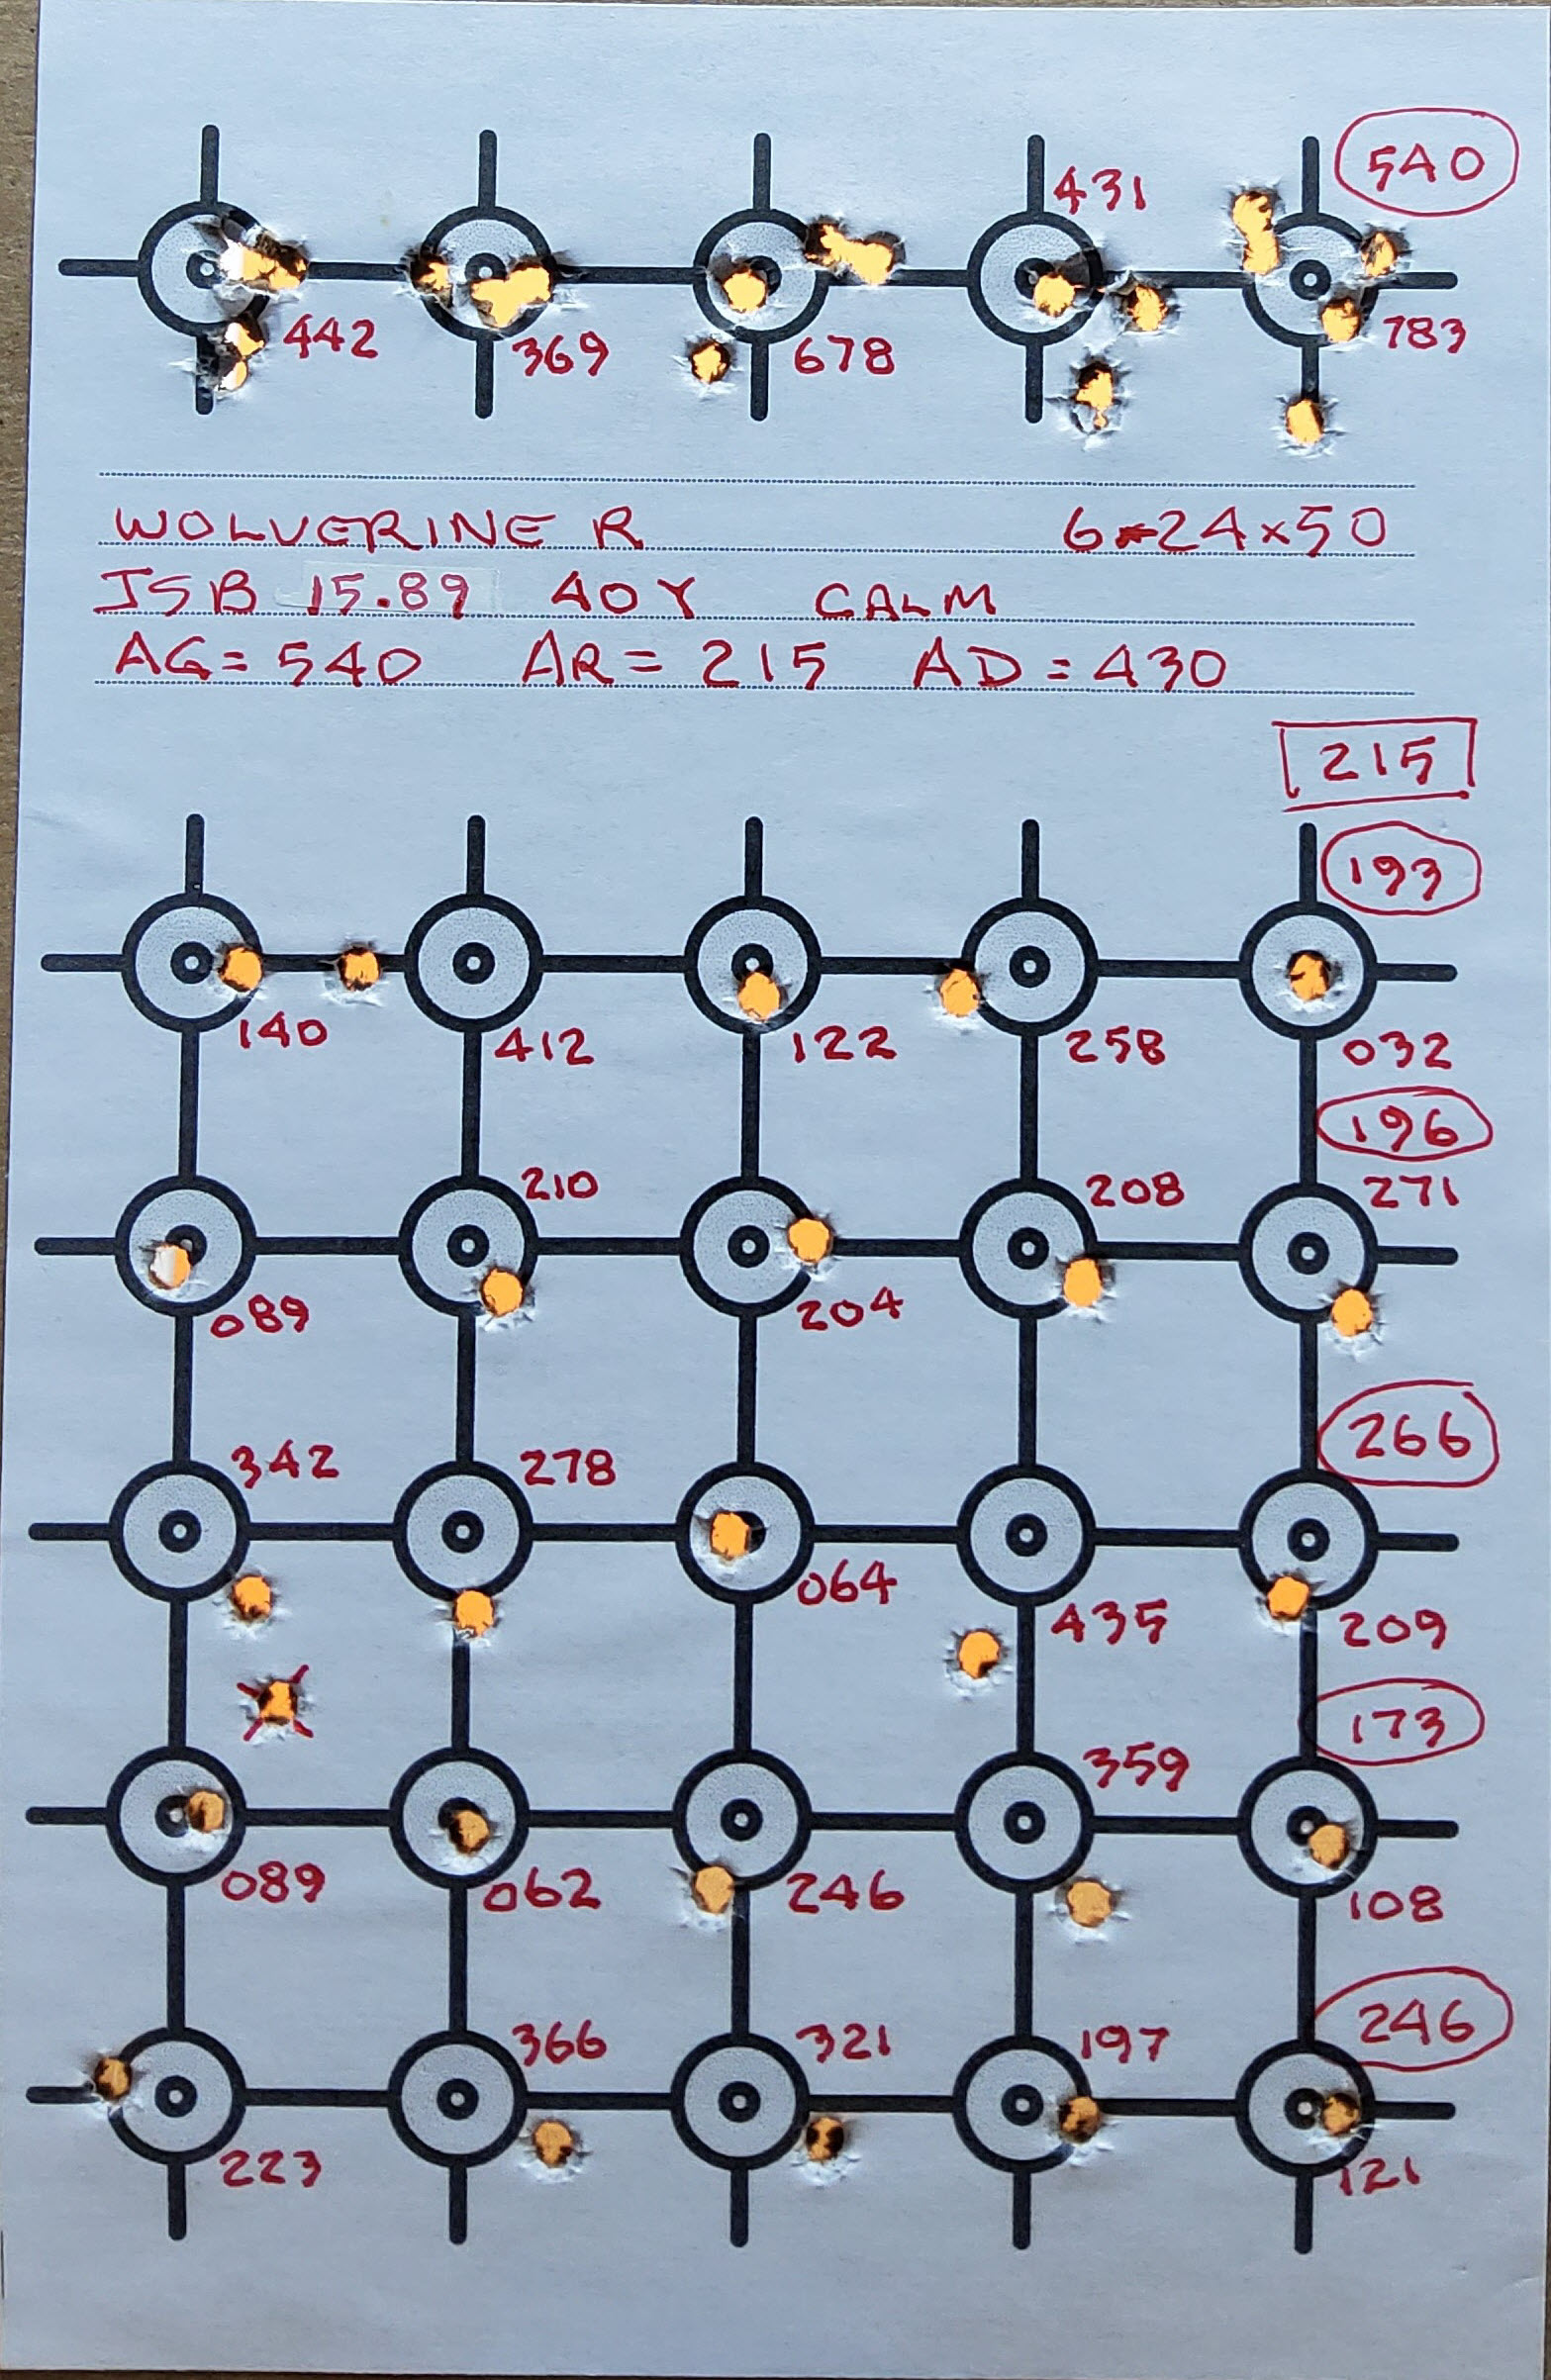 540
431
442 369 678 783
WOLVERINE R 6-24x50
JSB 15.89 40Y CALM
AG= 540 AR= 215 AD= 430
215
193
140 412 122 258 032
196
210 208 271
089 204
266
342 278
064 435 209
173
359
089 062 246 108
246
366 321 197
223 121